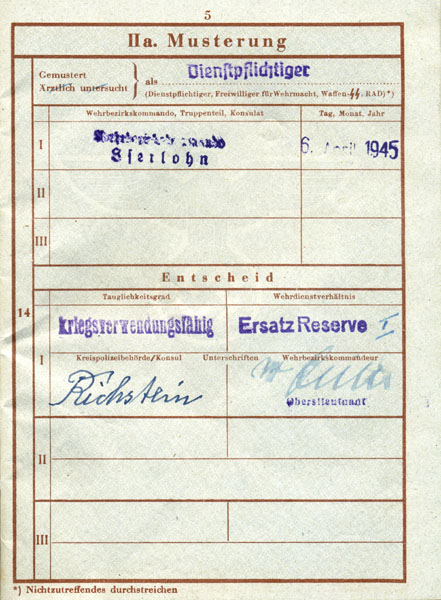 5
IIa. Musterung
Gemustert
Ärztlich untersucht
als Dienstpflichtiger
(Dienstpflichtiger, Freiwilliger für Wehrmacht, Waffen-SS, RAD)*)
Wehrbezirkskommando, Truppenteil, Konsulat
Tag, Monat, Jahr
I
Wehrbezirkskommando
Iserlohn
6. April 1945
II
III
Entscheid
14
Tauglichkeitsgrad
Wehrdienstverhältnis
kriegsverwendungsfähig
Ersatz Reserve I
I
Kreispolizeibehörde/Konsul
Unterschriften
Wehrbezirkskommandeur
Richstein
Oberstleutnant
II
III
*) Nichtzutreffendes durchstreichen